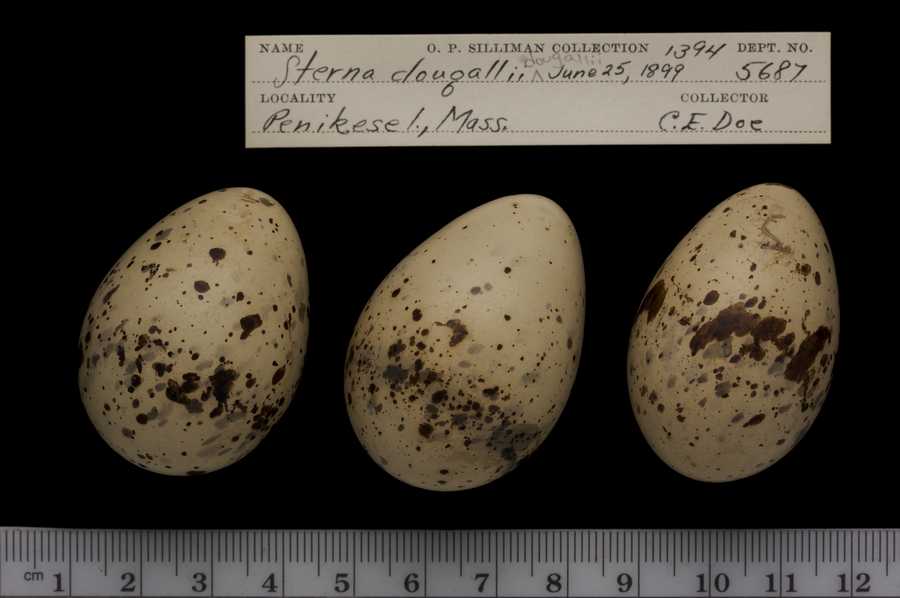 NAME O. P. SILLIMAN COLLECTION 1394 DEPT. NO.
dougallii
Sterna dougallii ^ June 25, 1899 5687
LOCALITY COLLECTOR
Penikese I., Mass. C.E. Doe
cm 1 2 3 4 5 6 7 8 9 10 11 12